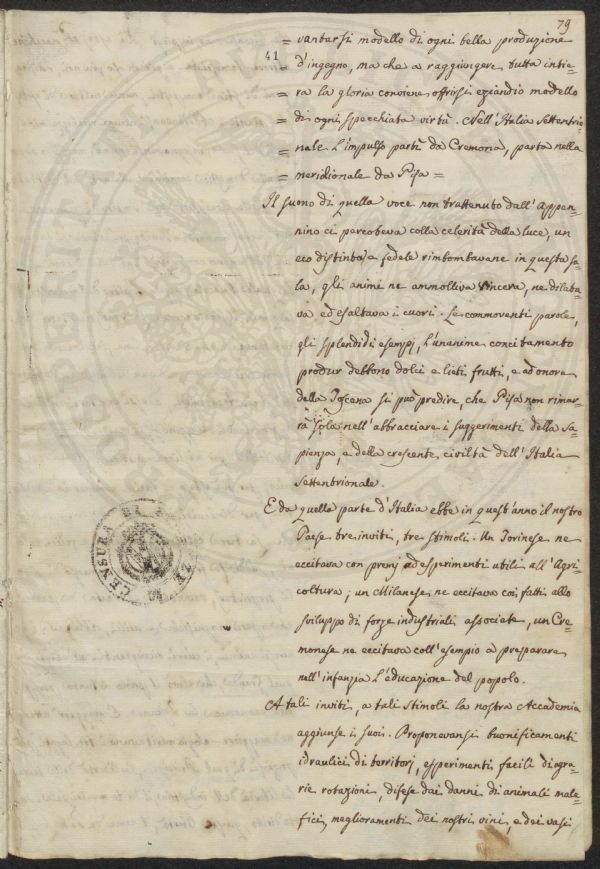 79
41
= vantarsi modello di ogni bella produzione
= d'ingegno, ma che a raggiungere tutta intie=
= ra la gloria conviene offrirsi eziandio modello
= di ogni specchiata virtù. Nell'Italia settentrio=
= nale l'impulso partì da Cremona, parta nella
= meridionale da Pisa =
Il suono di quella voce non trattenuto dall'Appen=
nino ci percoteva colla celerità della luce, un
eco distinto e fedele rimbombavane in questa sa=
la, gli animi ne ammolliva sincera, ne dilata=
va ed esaltava i cuori. Le commoventi parole,
gli splendidi esempj, l'unanime concitamento
produr debbono dolci e lieti frutti, e ad onore
della Toscana si può predire, che Pisa non rimar=
rà sola nell'abbracciare i suggerimenti della sa=
pienza, e della crescente civiltà dell'Italia
settentrionale.
E da quella parte d'Italia ebbe in quest'anno il nostro
Paese tre inviti, tre stimoli. Un Torinese ne
eccitava con premj ad esperimenti utili all'Agri
coltura; un Milanese ne eccitava coi fatti allo
sviluppo di forze industriali associate, un Cre=
monese ne eccitava coll'esempio a preparare
nell'infanzia l'educazione del popolo.
A tali inviti, a tali stimoli la nostra Accademia
aggiunse i suoi. Proponevansi buonificamenti
idraulici di territorj, esperimenti facili di agra=
rie rotazioni, difese dai danni di animali male=
fici, miglioramenti dei nostri vini, e dei vasi
CENSURA